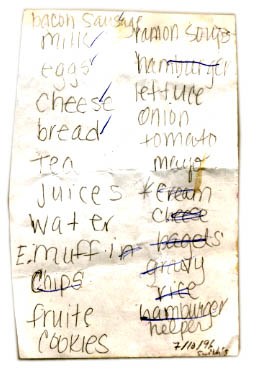 bacon sausage
milk
eggs
cheese
bread
tea
juices
water
E. muffin
chips
fruits
cookies
ramon soups
hamburger
lettuce
onion
tomato
mayo
cream
cheese
bagels
gravy
rice
hamburger
helper
7/10/96